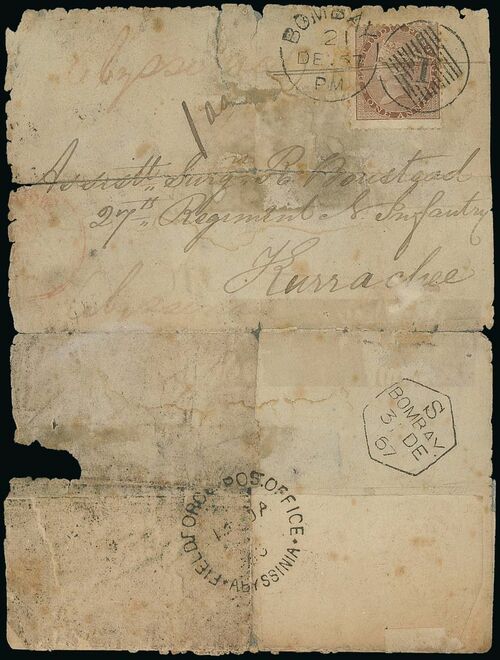 BOMBAY
21
DE.67
PM
ONE AN
1
1 an
Abyssinia
Assistt. Surgn. R. Boustead
27th Regiment N. Infantry
Kurrachee
S
BOMBAY.
3 DE
67
FIELD FORCE POST OFFICE
ABYSSINIA